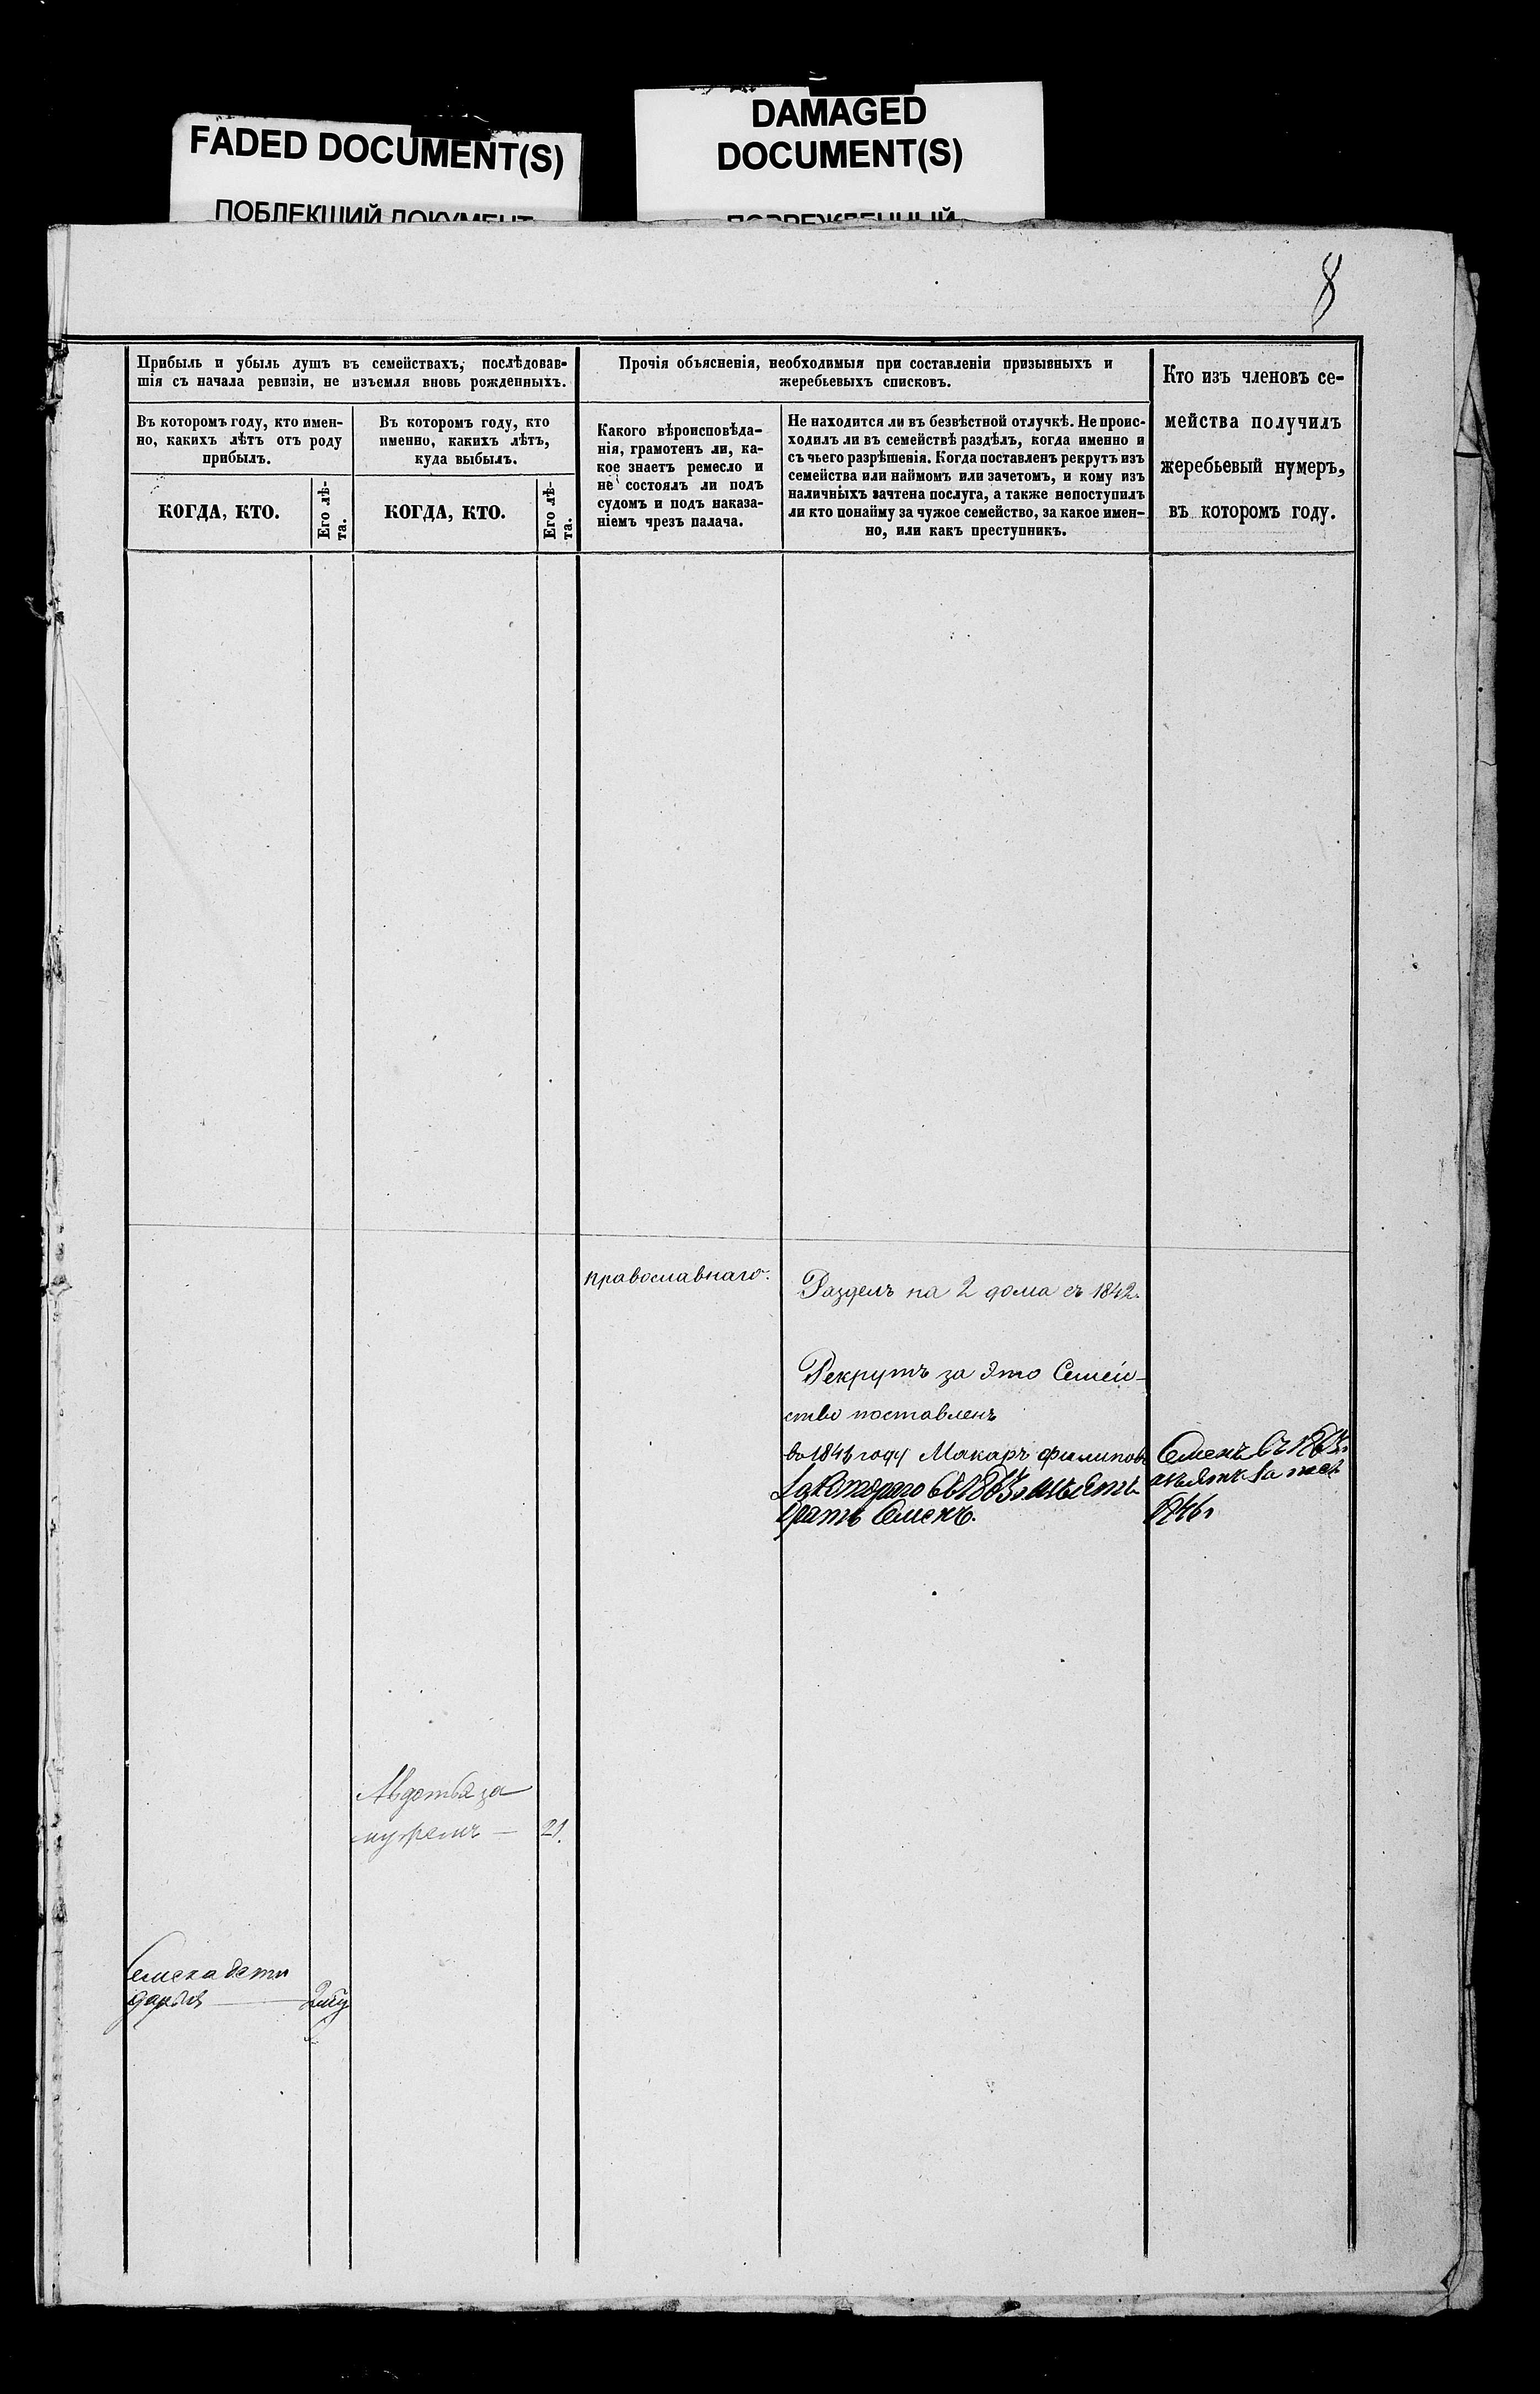 FADED DOCUMENT(S)
ПОБЛЕКШИЙ ДОКУМЕНТ
DAMAGED
DOCUMENT(S)
ПОВРЕЖДЕННЫЙ
8
Прибыль и убыль душъ въ семействахъ, послѣдовав-
шія съ начала ревизіи, не изъемля вновь рожденныхъ.
Въ которомъ году, кто имен-
но, какихъ лѣтъ отъ роду
прибылъ.
КОГДА, КТО.
Его лѣ-
та.
Въ которомъ году, кто
именно, какихъ лѣтъ,
куда выбылъ.
КОГДА, КТО.
Его лѣ-
та.
Прочія объясненія, необходимыя при составленіи призывныхъ и
жеребьевыхъ списковъ.
Какого вѣроисповѣда-
нія, грамотенъ ли, ка-
кое знаетъ ремесло и
не состоялъ ли подъ
судомъ и подъ наказа-
ніемъ чрезъ палача.
Не находится ли въ безвѣстной отлучкѣ. Не проис-
ходилъ ли въ семействѣ раздѣлъ, когда именно и
съ чьего разрѣшенія. Когда поставленъ рекрутъ изъ
семейства или наймомъ или зачетомъ, и кому изъ
наличныхъ зачтена послуга, а также непоступилъ
ли кто понайму за чужое семейство, за какое имен-
но, или какъ преступникъ.
Кто изъ членовъ се-
мейства получилъ
жеребьевый нумеръ,
въ которомъ году.
православнаго.
Разделъ на 2 дома съ 1842
Рекрутъ за это Семей-
ство поставленъ
во 184 году Макаръ Филипов
за Котораго изъятъ
братъ Семенъ.
Семенъ
изъятъ за
Авдотья за
мужемъ — 21.
Семена дети
дарья